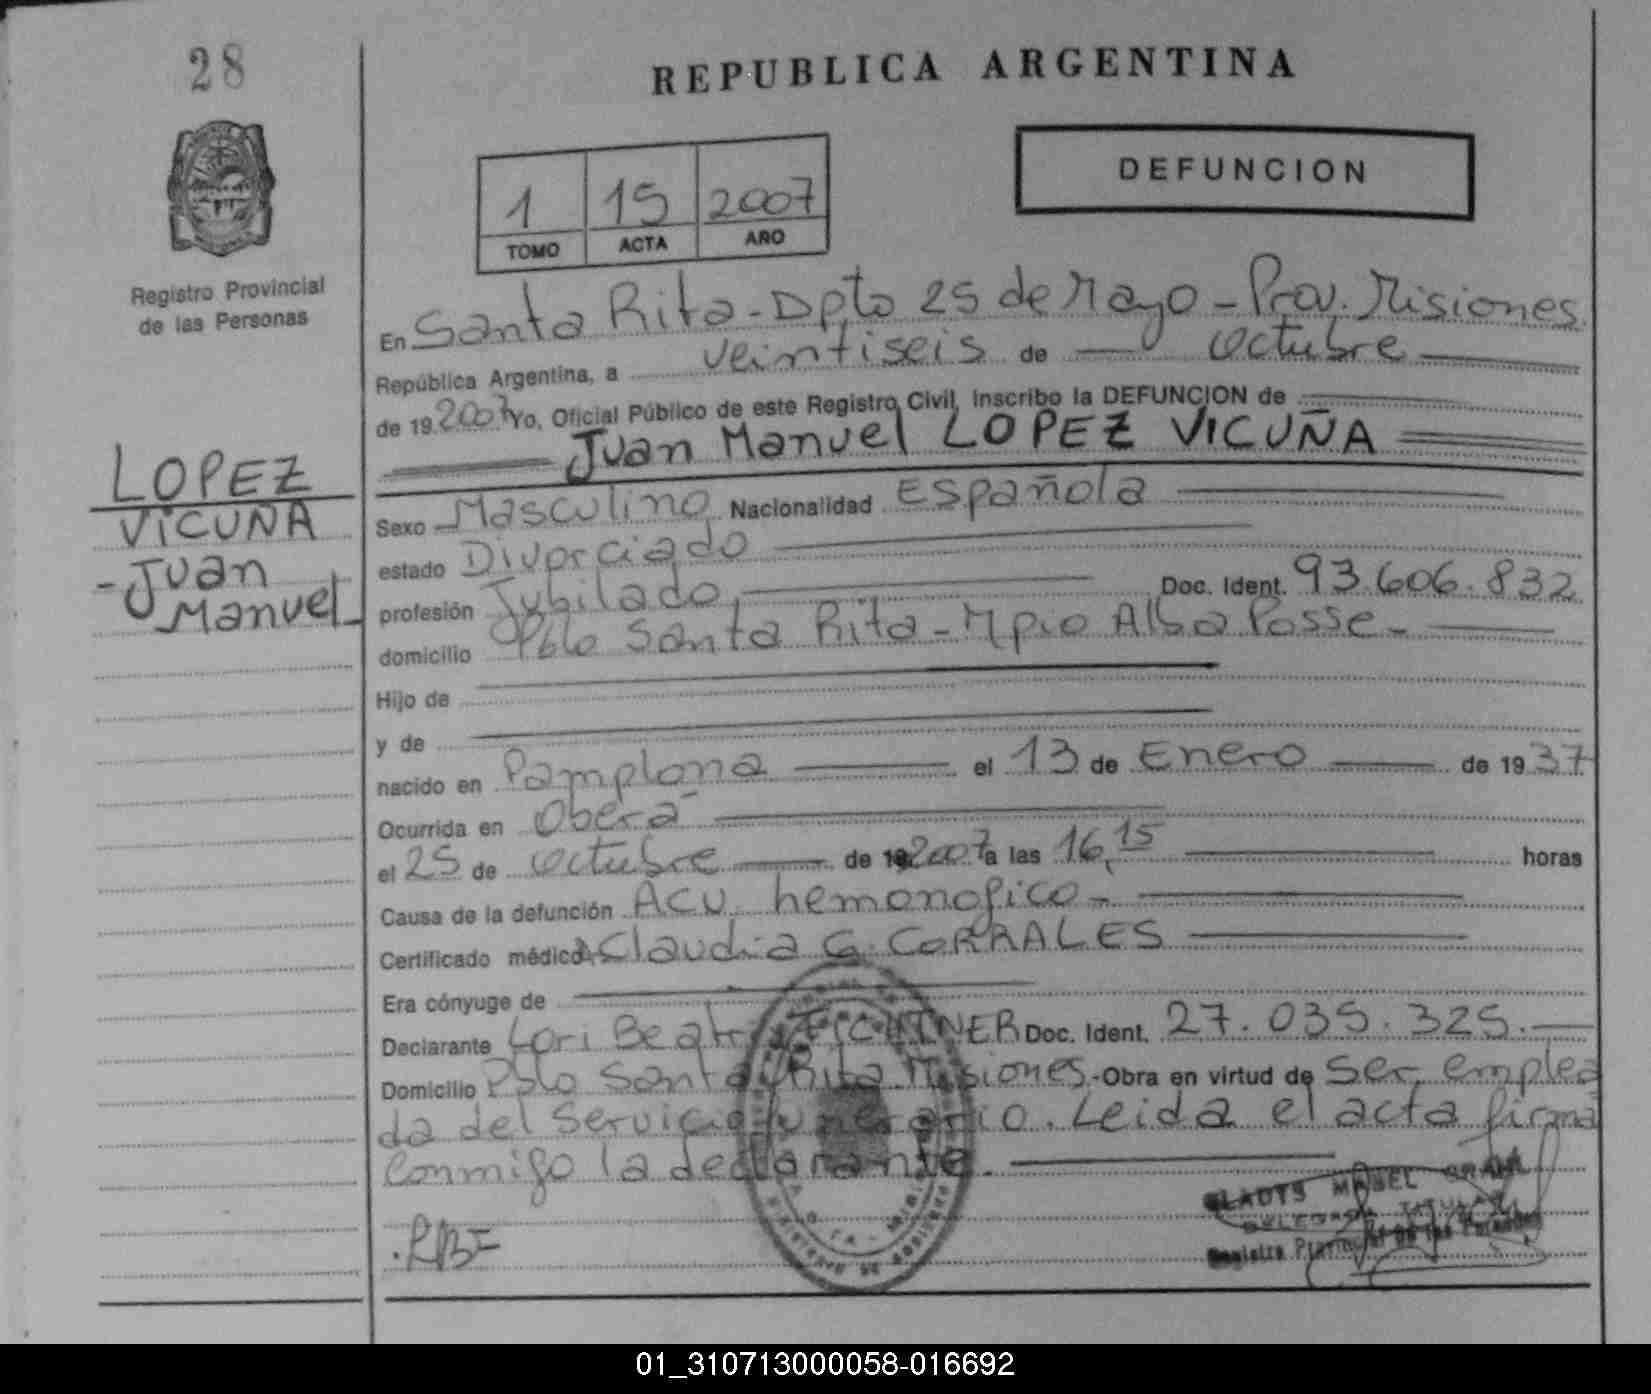 28
REPUBLICA ARGENTINA
DEFUNCION
1 15 2007
TOMO ACTA AÑO
Registro Provincial
de las Personas
LOPEZ
VICUÑA
- Juan
Manuel
En Santa Rita - Dpto 25 de Mayo - Prov. Misiones
República Argentina, a veintiseis de octubre
de 19 2007 Yo, Oficial Público de este Registro Civil, inscribo la DEFUNCION de
Juan Manuel LOPEZ VICUÑA
Sexo Masculino Nacionalidad Española
estado Divorciado
profesión Jubilado Doc. Ident. 93.606.832
domicilio Pblo Santa Rita - Mpio Alba Posse -
Hijo de
y de
nacido en Pamplona el 13 de Enero de 1937
Ocurrida en Oberá
el 25 de octubre de 19 2007 a las 16,15 horas
Causa de la defunción ACV. hemorragico -
Certificado médico Claudia G. CORRALES
Era cónyuge de
Declarante Lori Beatriz FICHTNER Doc. Ident. 27.035.325.
Domicilio Pblo Santa Rita Misiones - Obra en virtud de ser emplea
da del servicio funerario. Leida el acta firma
conmigo la declarante.
.LBF
GLADYS MABEL
DELEGADA TITULAR
Registro Provincial de las Personas
01_310713000058-016692